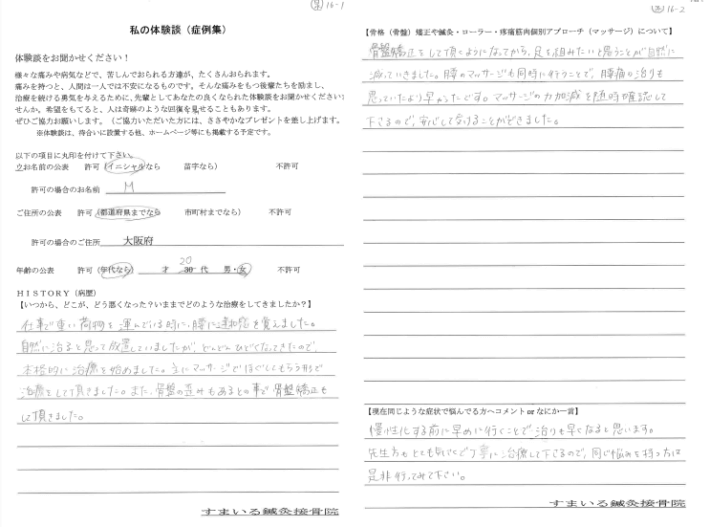 私の体験談（症例集）
体験談をお聞かせください！
様々な痛みや病気などで、苦しんでおられる方達が、たくさんおられます。
痛みを持つと、人間は一人では不安になるものです。そんな痛みをもつ後輩たちを励まし、
治療を続ける勇気を与えるために、先輩としてあなたの良くなられた体験談をお聞かせください
せんか。希望をもてると、人は奇跡のような回復を見せることもあります。
ぜひご協力お願いします。（ご協力いただいた方には、ささやかなプレゼントを差し上げます。
※体験談は、待合いに設置する他、ホームページ等にも掲載する予定です。
以下の項目に丸印を付けて下さい。
お名前の公表 許可（イニシャルなら 苗字なら） 不許可
許可の場合のお名前 M
ご住所の公表 許可（都道府県までなら 市町村までなら） 不許可
許可の場合のご住所 大阪府
年齢の公表 許可（年代なら） 才 20 30 代 男・女） 不許可
HISTORY（病歴）
【いつから、どこが、どう悪くなった？いままでどのような治療をしてきましたか？】
仕事で重い荷物を運んでいる時に、腰に違和感を覚えました。
自然に治ると思って放置していましたが、どんどんひどくなってきたので、
本格的に治療を始めました。主にマッサージでほぐしてもらう形で
治療をして頂きました。また、骨盤の歪みもあるとの事で骨盤矯正も
して頂きました。
すまいる鍼灸接骨院
16-2
【骨格（骨盤）矯正や鍼灸・コーラー・疼痛筋肉個別アプローチ（マッサージ）について】
骨盤矯正をして頂くようになってから、足を組みたいと思うことが自然に
減っていきました。腰のマッサージも同時に行うことで、腰痛の治りも
思っていたより早かったです。マッサージの力加減を随時確認して
下さるので、安心して受けることができました。
【現在同じような症状で悩んでる方へコメント orなにか一言】
慢性化する前に早めに行くことで治りも早くなると思います。
先生方もとても親切でご丁寧に治療して下さるので、同じ悩みを持つ方は
是非行ってみて下さい。
すまいる鍼灸接骨院